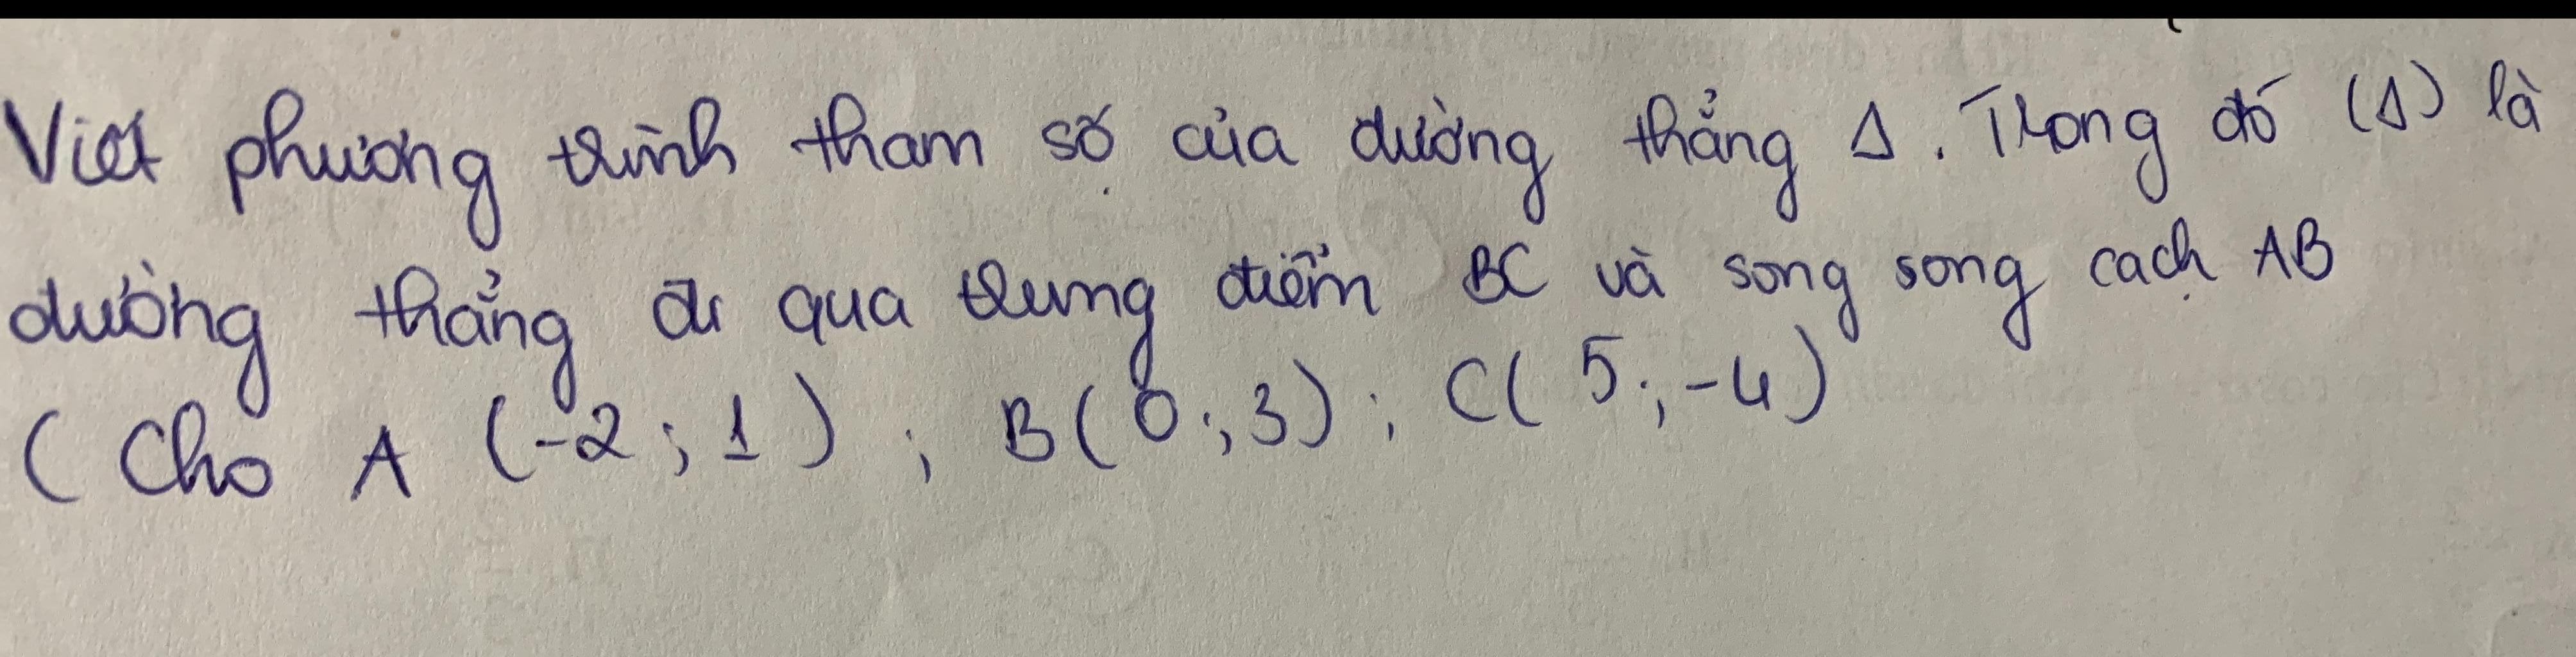 Viết phương trình tham số của đường thẳng Δ. Trong đó (Δ) là
đường thẳng đi qua trung điểm BC và song song cạch AB
( Cho A (-2 ; 1) ; B(0 ; 3) ; C( 5 ; -4)